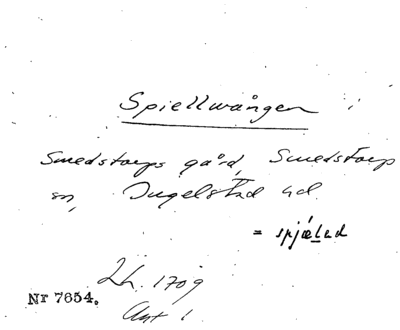 Spiellwången
Smedstorps gård, Smedstorp
sn, Ingelstad hd.
= spjælad
Lh. 1709
Akt 1
Nr 7654.